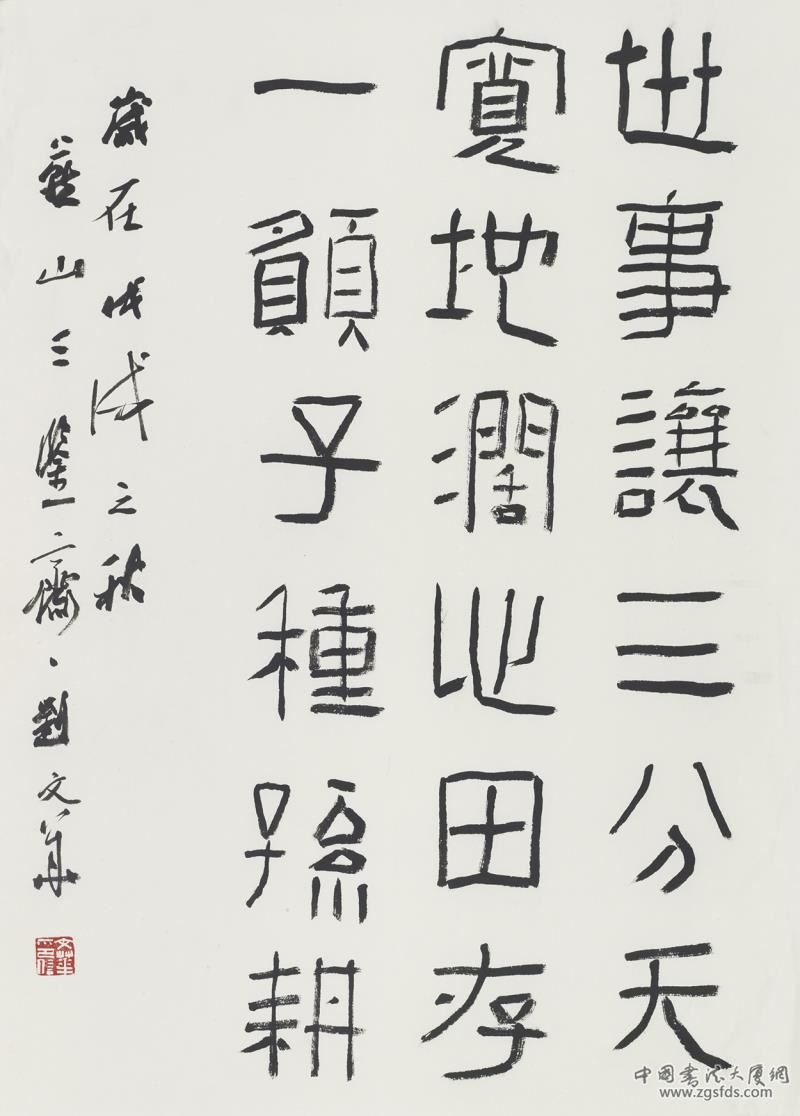 世事讓三分天
寬地濶心田存
一子種孫耕
歲在戊戌之秋
山三鑒齋劉文華
中國書法大厦網
www.zgsfds.com